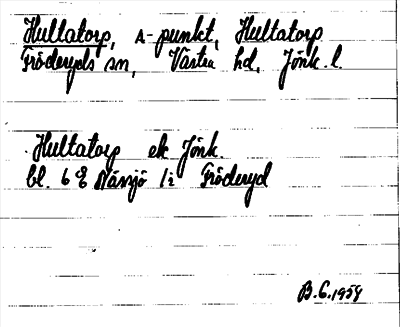 Hultatorp, A-punkt, Hultatorp
Fröderyds sn, Västra hd, Jönk. l.
Hultatorp ek Jönk.
bl. 6 E Nässjö 1:2 Fröderyd
B.G. 1958